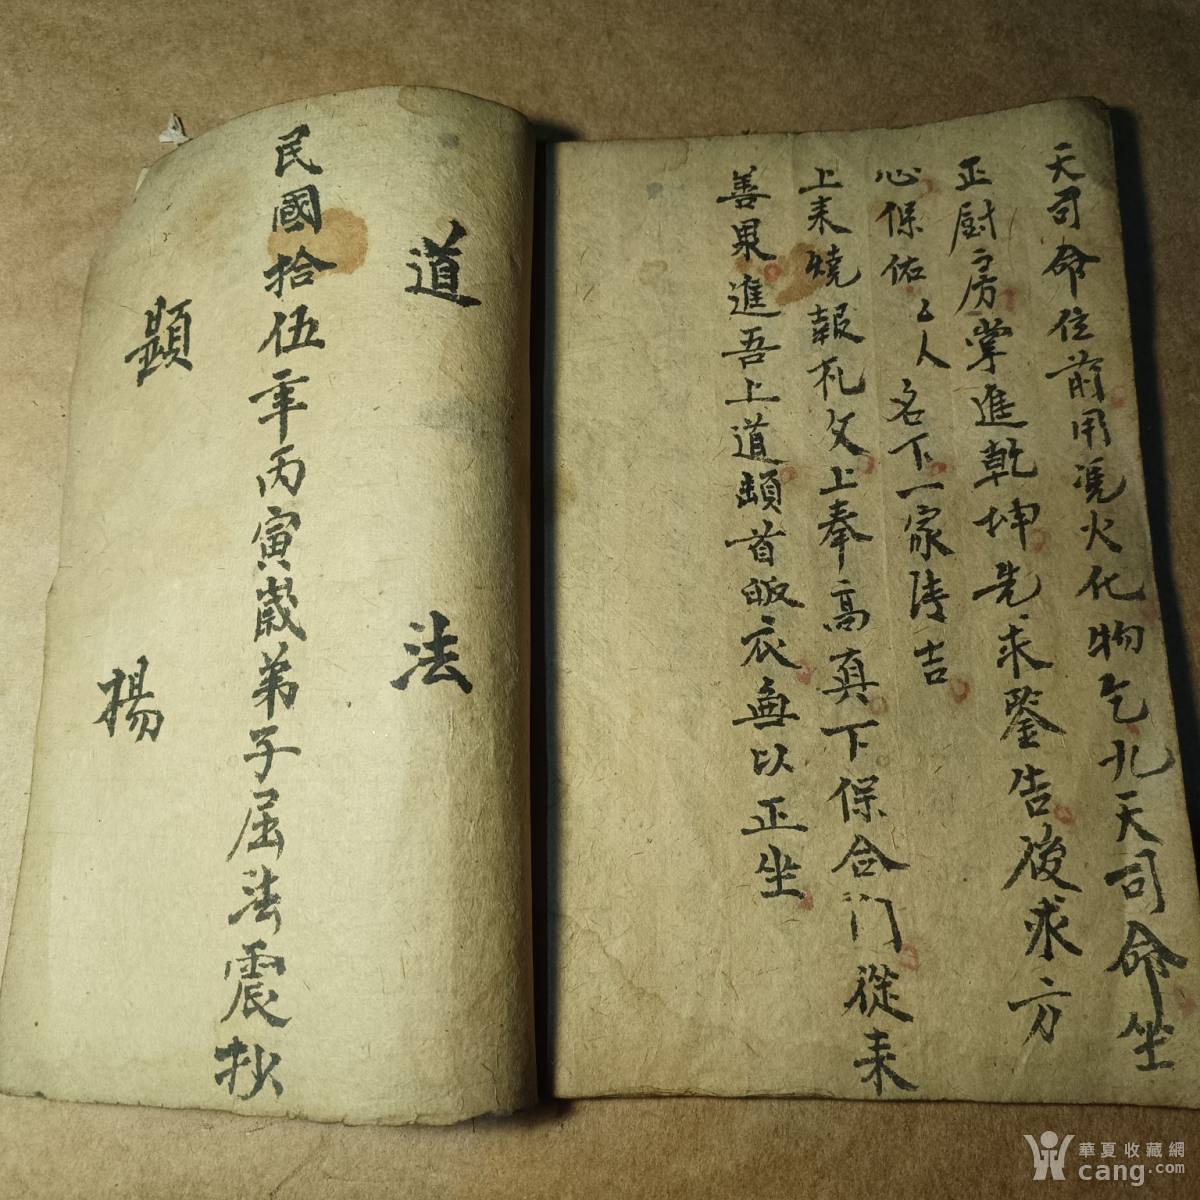 天司命位前用凭火化物乞九天司命坐
正厨房掌進乾坤先求鑒告後求方
心保佑厶人名下一家清吉
上来燒報札文上奉高真下保合门從来
善果進吾上道頭首皈衣無以正坐
道法
民國拾伍年丙寅歲弟子屈法震抄
顯揚
華夏收藏網
cang.com